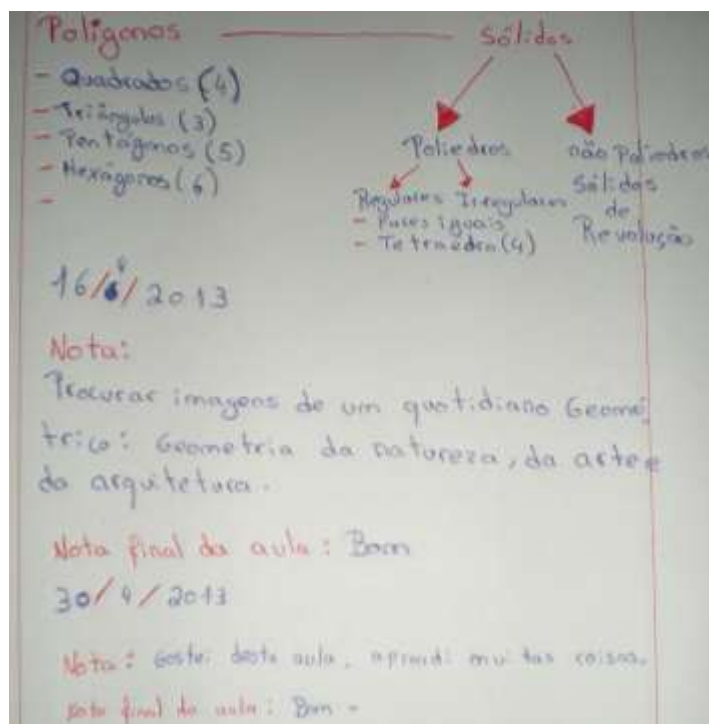 Polígonos — Sólidos
- Quadrados (4)
- Triângulos (3)
- Pentágonos (5)
- Hexágonos (6)
-
Poliedros
não Poliedros
Sólidos
de
Revolução
Regulares Irregulares
- Faces iguais
- Tetraedro (4)
16/4/2013
Nota:
Procurar imagens de um quotidiano Geomé
trico: Geometria da natureza, da arte e
da arquitetura.
Nota final da aula: Bom
30/4/2013
Nota: Gostei desta aula, aprendi muitas coisas.
Nota final da aula: Bom -